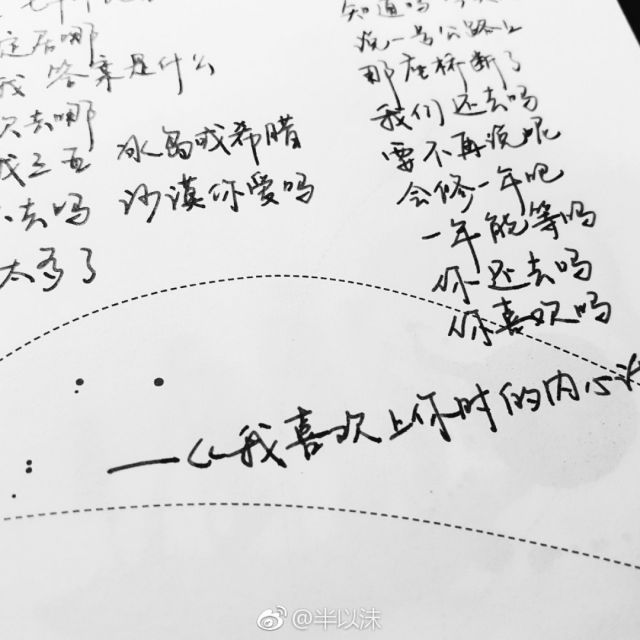 定居哪
我 答案是什么
次去哪
冰岛或希腊
去吗 沙漠你爱吗
太多了
知道吗
说一号公路上
那座桥断了
我们还去吗
要不再说呢
会修一年吧
一年能等吗
你还去吗
你喜欢吗
—《我喜欢上你时的内心
@半以沫